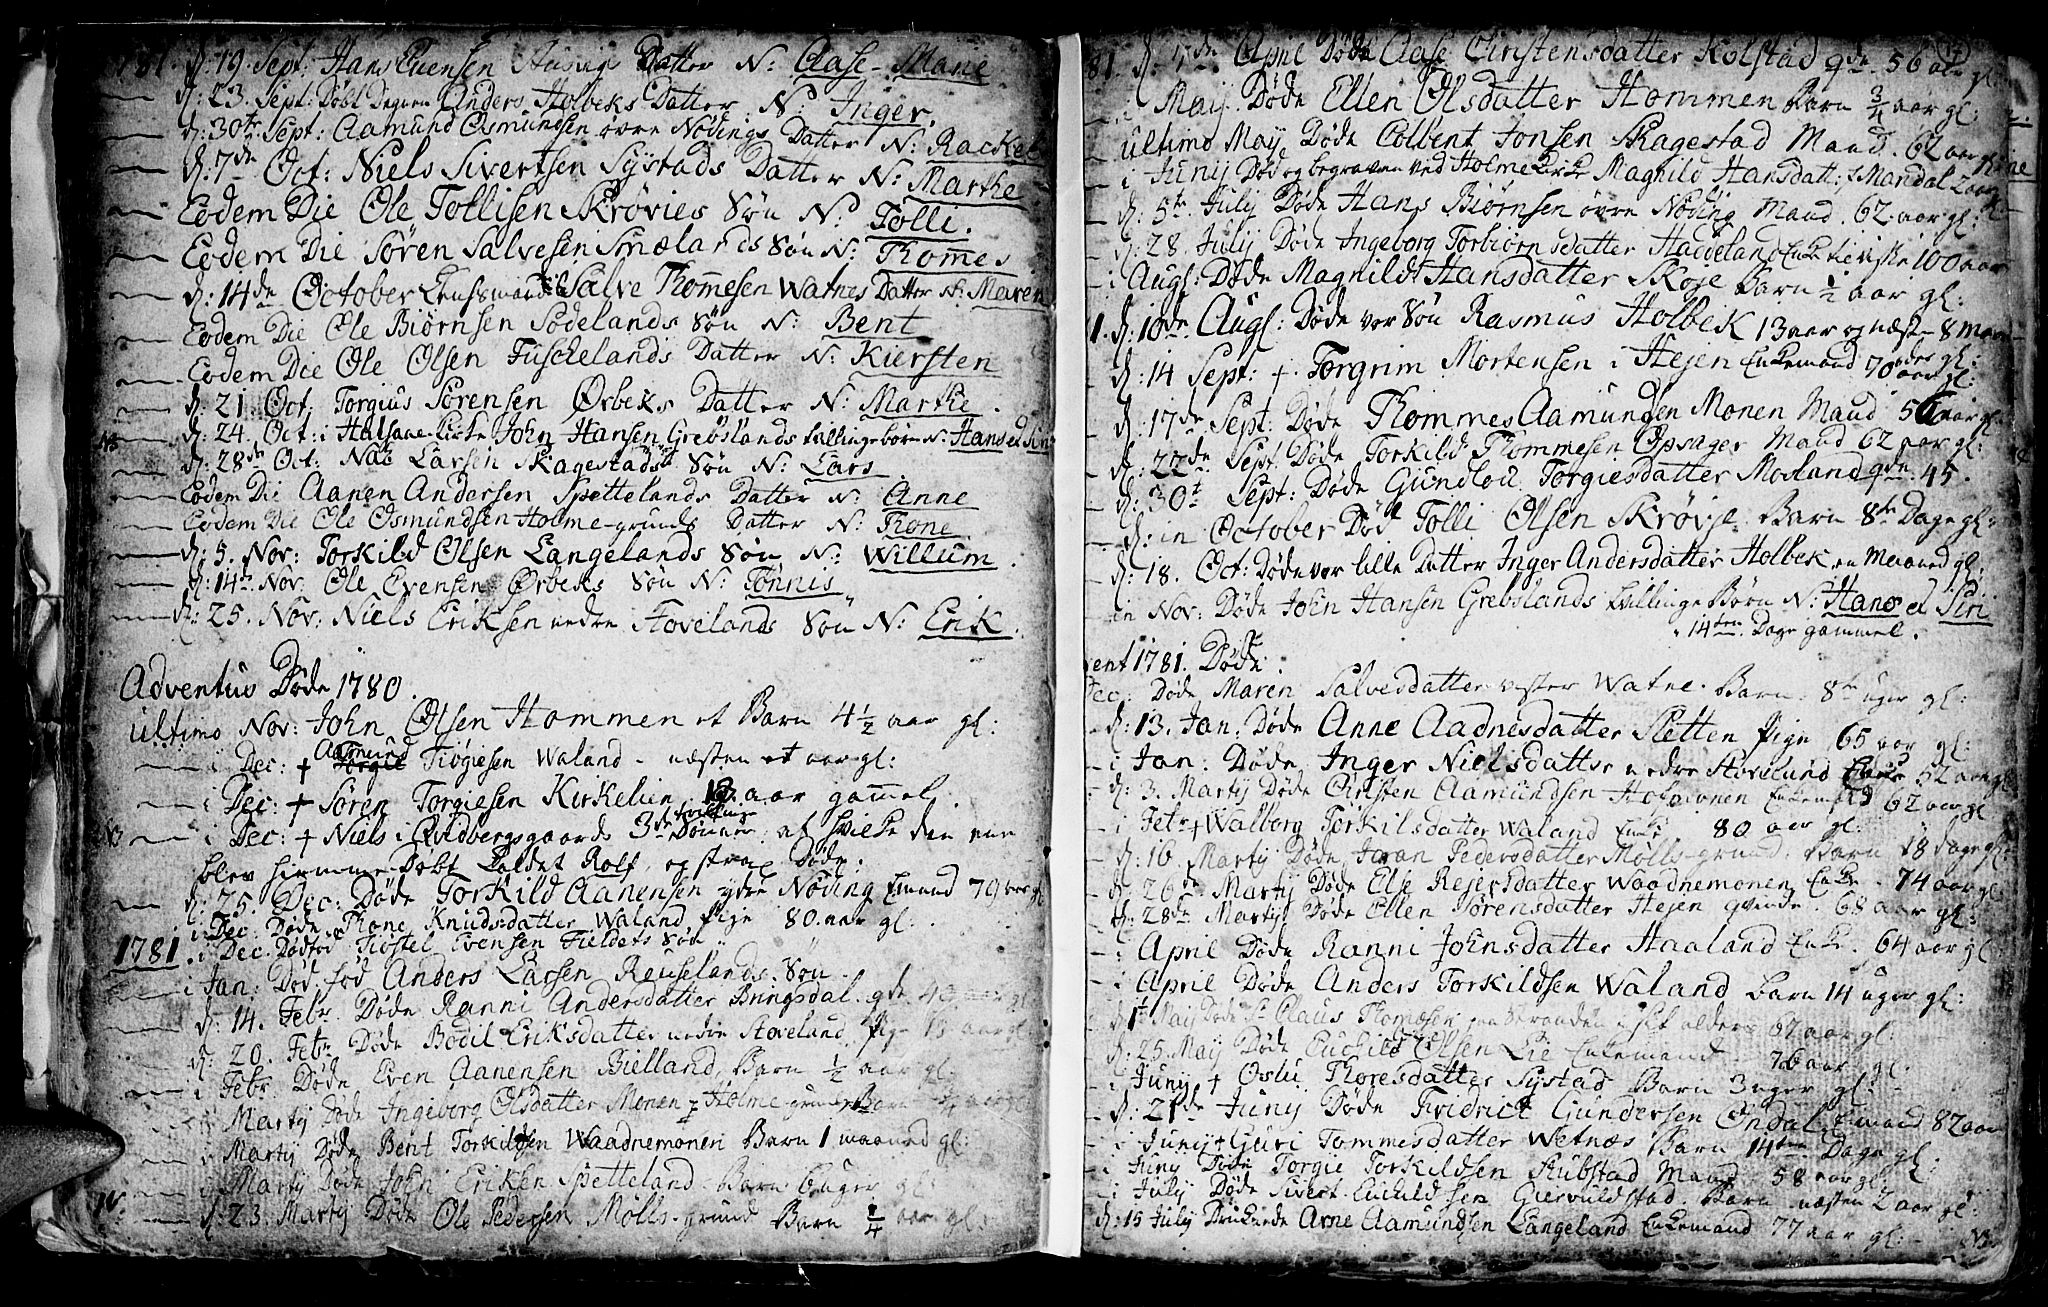 1781. d: 19. Sept: Hans Evensen Datter N: Aase-Marie
d: 23. Sept: Døbt Degnen Anders Holbeks Datter N: Inger.
d: 30te Sept: Aamund Osmundsen øvre Nødings Datter N: Rackel
d: 7de Oct: Niels Sivertsen Systads Datter N: Marthe
Eodem Die Ole Tollisen Skrøvies Søn N: Tolli.
Eodem Die Søren Salvesen Smælands Søn N: Thomes
d: 14de October Lensmand Salve Thomesen Watnes Datter N: Maren
Eodem Die Ole Biørnsen Sødelands Søn N: Bent
Eodem Die Ole Olsen Fuschelands Datter N: Kiersten
d: 21 Oct. Torgius Sørensen Ørbeks Datter N: Marthe.
NB d: 24. Oct: i Halsaae Kirke John Hansen Grebslands tvillingebørn N: Hans et Siri
d: 28de Oct: Larsen Skagestads Søn N: Lars
Eodem Die Aanen Andersen Spettelands Datter N: Anne
Eodem Die Ole Osmundsen Holme-grunds Datter N: Thone
d: 5. Nov: Torkild Olsen Langelands Søn N: Willum.
d: 14de Nov. Ole Evensen Ørbeks Søn N: Tønnis
d: 25. Nov: Niels Eriksen nedre Stovelands Søn N: Erik.
Adventus Døde 1780.
ultimo Nov: John Olsen Hommen et Barn 4 1/2 aar gl:
i Dec: + Aamund Tiøgiesen Waland - næsten et aar gl:
i Dec: + Søren Torgiesen Kirkelien aar gammel.
NB i Dec: + Niels i Qvidbergsgaards 3de Sønner af hvilke den ene
blev hiemme-Døbt Kaldet Rolf, og strax Døde.
d: 25. Dec: Døde Torkild Aanensen ydre Nøding Emand 79 aar gl
i Dec: Døde Thone Knudsdatter Waland Pige 80. aar gl:
1781. i Dec. Dødfød Tiostel Evensen Fieldets Søn
i Jan: Død-fød Anders Larsen Reuselands Søn
d: 14. Febr. Døde Ranni Andersdatter Bringsdal. qde 40 aar gl
d: 20. Febr Døde Bodil Eriksdatter nedre Stoveland Pige aar gl
i Febr. Døde Even Aanensen Bielland, Barn 1/2 aar gl:
i Martij Døde Ingeborg Olsdatter Monen Holme-grund Barn aar gl
i Martij Døde Bent Torkildsen Waadnemonen Barn 1 maaned gl:
i Martij Døde John Eriksen Spetteland Barn 6 uger gl:
d. 23. Martij Døde Ole Pedersen Mølls-grund Barn 1/4 aar gl:
81. d: 7de April Døde Aase Cirstensdatter Kolstad qde. 56 aar gl:
i May Døde Ellen Olsdatter Hommen Barn 3/4 aar gl:
ultimo May Døde Colbent Jonsen Skagestad Mand. 62 aar gl
i Junij Død og begraven ved Holme Kirke Magnild Hansdatt: f: Mandal 2 aar
d: 5te July Døde Hans Biørnsen øvre Nøding Mand. 62 aar gl:
d: 28. July Døde Ingeborg Torbiørnsdatter Haddeland Enke 100 aar
i Augl: Døde Magnildt Hansdatter Skoje Barn 1/2 aar gl:
d: 10de Augl: Døde vor Søn Rasmus Holbek 13 aar og næst 8 maaneder gl:
d: 14 Sept: + Torgrim Mortensen i Hejen Enkemand 70 aar gl:
d: 17de Sept: Døde Thommes Aamunden Monen Mand 56 aar gl
d: 22de Sept: Døde Torkild Thommesen Opsager Mand 62 aar gl:
d: 30te Sept: Døde Gundlou Torgiesdatter Mosland qde 45.
d: in October Død Tolli Olsen Skrøvie Barn 8te Dage gl:
d: 18. Oct: Døde vor lille Datter Inger Andersdatter Holbek en Maaned gl:
in Nov: Døde John Hansen Grebslands tvillinge Børn N: Hans et Siri
14ten Dage gammel.
1781. Døde.
Dec: Døde Maren Salvesdatter vester Watne. Barn 8te uger gl:
d: 13. Jan: Døde Anne Aadnesdatter Sletten Pige 65 aar gl:
i Jan: Døde Inger Nielsdatter nedre Stoveland Enke 52 aar gl
d: 3. Martij Døde Cirsten Aamundsen Enkemand 62 aar gl
i Febr + Walborg Torkilsdatter Waland Enke. 80 aar gl:
d: 16. Martij Døde Joran Pedersdatter Mølls-grund Barn 18 dage gl:
d: 26de Martij Døde Else Rejersdatter Waadnemonen Enke. 74 aar gl
d: 28de Martij Døde Ellen Sørensdatter Hejen qvinde. 68 aar gl:
i April Døde Ranni Johnsdatter Haaland Enke. 64 aar gl
i April Døde Anders Torkildsen Waland Barn 14 uger gl:
d: 1te May Døde Sr Claus Thomæsen paa Stranden i sit alders 62 aar gl:
d: 25. May Døde Olsen Lie Enkemand 76 aar gl:
i Juny + Oslu Thoresdatter Systad Barn 3 uger gl:
d: 21de Junij Døde Fridrick Gundersen Øndal Emand 82 aar
i Junij + Guri Tommesdatter Wetnæs Barn 14ten Dage gl:
i Juny Døde Torgie Torkildsen Stubstad Mand 58 aar gl:
i July Døde Sivert Giervuldstad. Barn næsten 2 aar gl:
d: 15 July Druknede Arne Aamundsen Langeland Enkemand 77 aar gl: